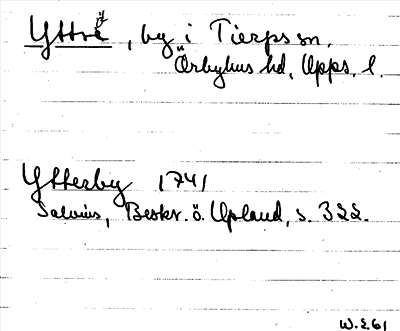 Yttre, by i Tierps sn,
Örbyhus hd, Upps. l.
Ytterby 1741
Salvius, Beskr. ö. Upland, s. 322.
W.E.61